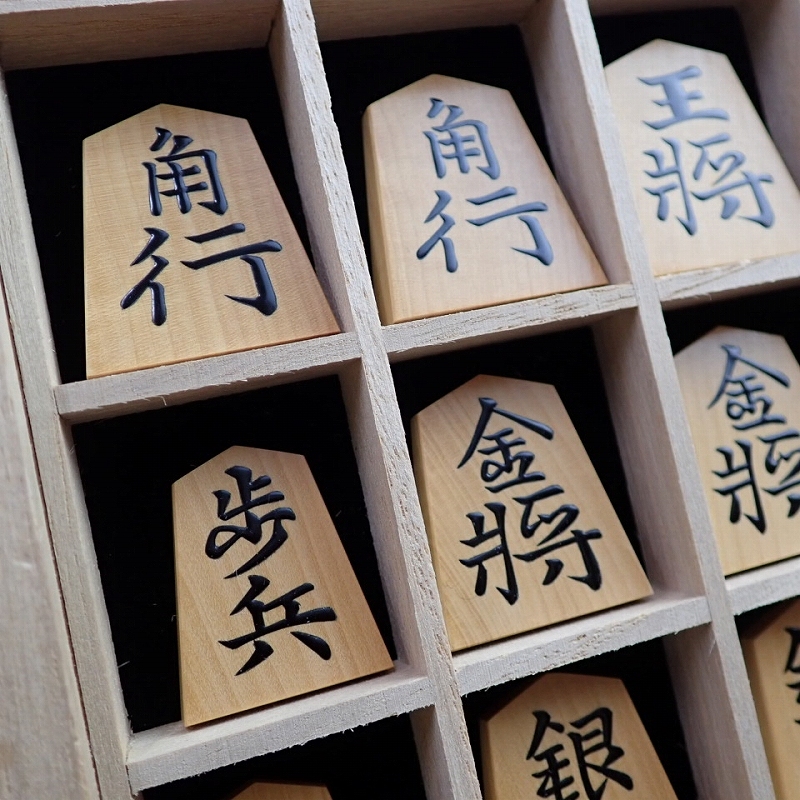 角行
角行
王將
歩兵
金將
金將
銀